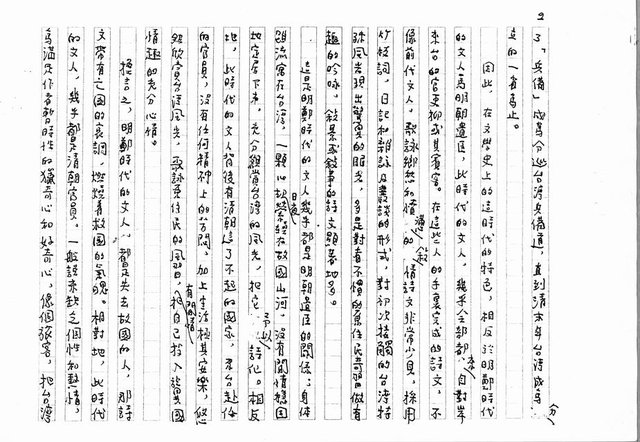 2
了「兵備」成為分巡台灣兵備道,直到清末年台灣成為
立的一省為止。
因此,在文學史上的這時代的特色,相反於明鄭時代
的文人為明朝遺臣,此時代的文人,幾乎全部都來自對岸
來台的官吏抑或其賓客。在這些人的手裏完成的詩文,不
像前代文人,歌詠鄉愁和情的情詩文非常少見,採用
竹枝詞,日記和雜詠及叢談的形式,對初次接觸的台灣特
殊風光現出驚異的眼光,多是對看不慣的原住民奇習做有
趣的吟咏。敘景或敘事的詩文顯著地多。
這是明鄭時代的文人幾乎都是明朝遺臣的關係,身體
雖流寓在台灣,一顆心卻縈繞在故國山河,沒有閒情穩固
地定居下來,充分觀賞台灣的風光,把它予以詩化。相反
地,此時代的文人背後有清朝這了不起的國家,來台赴任
的官員,沒有任何精神上的苦悶。加上生活極其安樂,悠
然欣賞台灣風光,歌詠原住民的風習,有閒情把自己投入異國
情趣的充分心情。
換言之,明鄭時代的文人都是失去故國的人,那詩
文帶有亡國的哀調,燃燒着救國的氣魄。相對地,此時代
的文人,幾乎都是清朝官員。一般說來缺乏個性和熱情,
充滿是作者暫時性的獵奇心和好奇心,像個旅客,把台灣